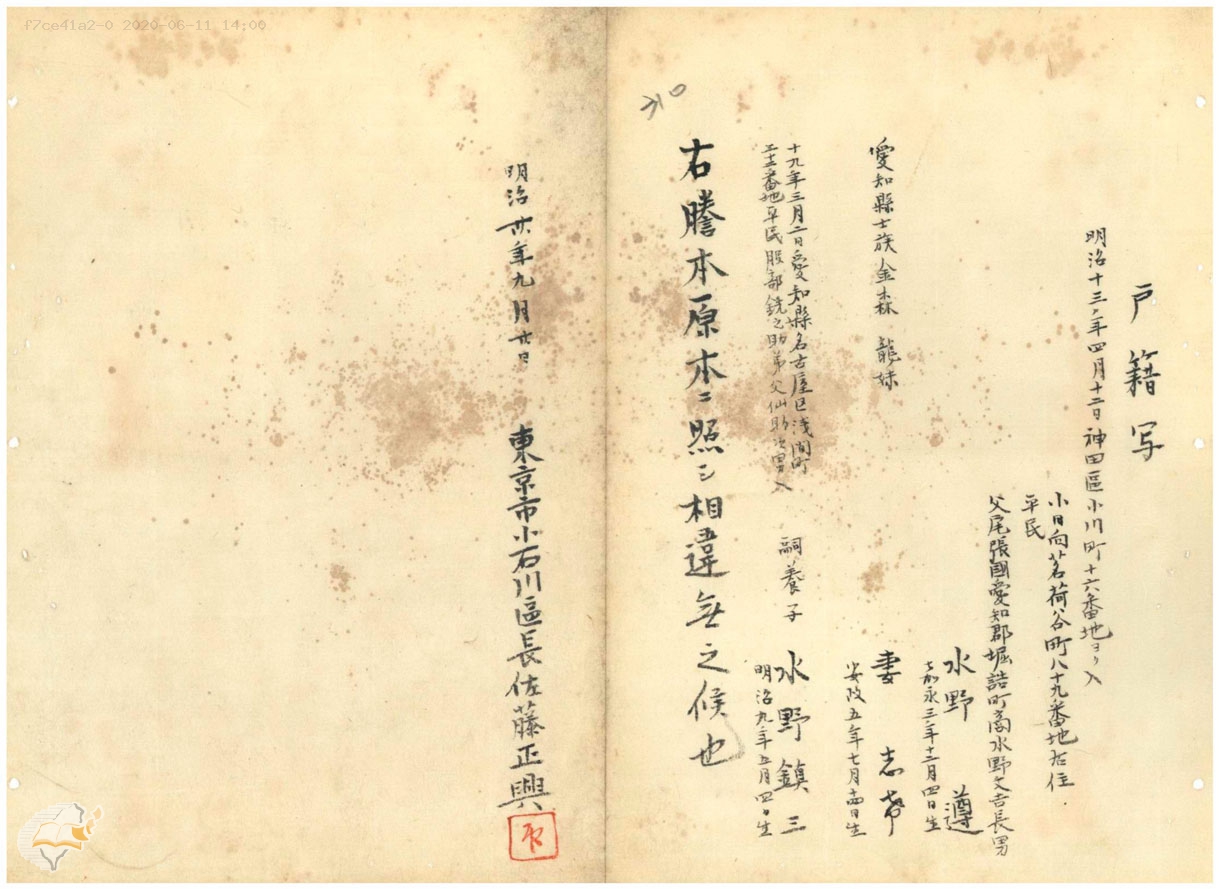 f7ce41a2-0 2020-06-11 14:00
戸籍写
明治十三年四月十二日神田區小川町十六番地ヨリ入
小日向茗荷谷町八十九番地居住
平民
父尾張國愛知郡堀詰町商水野文吉長男
水野 遵
嘉永三年十二月四日生
愛知縣士族金森 龍妹
妻 志希
安政五年七月十四日生
十九年三月二日愛知縣名古屋区浅間町
番地平民服部銑之助弟父仙助次男入
嗣養子 水野鎮三
明治九年五月四日生
右謄本原本ニ照シ相違無之候也
明治廿年九月廿日
東京市小石川區長佐藤正興